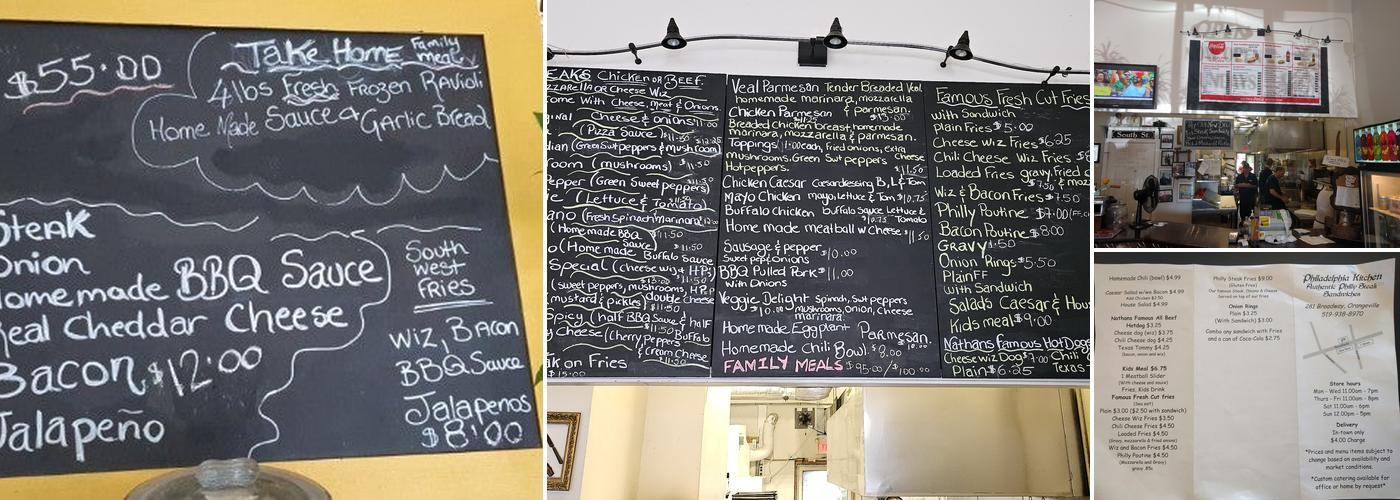 $55.00
Take Home Family meal
4lbs Fresh Frozen Ravioli
Home Made Sauce & Garlic Bread
Steak
Onion
Homemade BBQ Sauce
Real Cheddar Cheese
Bacon $12.00
Jalapeño
South
west
fries
Wiz, Bacon
BBQ Sauce
Jalapenos
$8.00
EAKS Chicken or Beef
zzarella or Cheese Wiz
ome With Cheese, Meat & Onions
Cheese & onions 11.00
(Pizza Sauce) $11.50
lian (Green Swt peppers & mushroom) $12.25
room (mushrooms) $11.50
epper (Green Sweet peppers)
(Lettuce & Tomato) $11.50
ano (Fresh Spinach marinara)
(Home made BBQ Sauce) $11.50
o (Home made Buffalo Sauce $11.50
Special (cheese wiz & H.P's)
(sweet peppers, mushrooms, H.P.
(mustard & pickles) double cheese
Spicy (half BBQ Sauce & half Buffalo
y Cheese (cherry peppers & Cream Cheese
kon Fries
$15.00
Veal Parmesan Tender Breaded Veal
homemade marinara, mozzarella
& parmesan.
Chicken Parmesan $13.00
Breaded chicken breast, homemade
marinara, mozzarella & parmesan.
Toppings 1.00 each, fried onions, extra
mushrooms, Green Swt peppers Cheese
Hot peppers. $11.50
Chicken Caesar Caesar dressing B, L & Tom
Mayo Chicken mayo, lettuce & Tom $10.75
Buffalo Chicken buffalo Sauce Lettuce &
$10.75 Tomato
Home made meatball w Cheese $11.50
Sausage & pepper $10.00
Sweet pep & onions
BBQ Pulled Pork $11.00
With Onions
Veggie Delight Spinach, Swt peppers
$10.00 mushrooms, Onion, Cheese
marinara.
Home made Eggplant Parmesan.
Homemade Chili Bowl $8.00
FAMILY MEALS $95.00/$100.00
Famous Fresh Cut Fries
with Sandwich
Plain Fries $5.00
Cheese Wiz Fries $6.25
Chili Cheese Wiz Fries $8
Loaded Fries gravy, Fried o
$7.50 & moz
Wiz & Bacon Fries $7.50
Philly Poutine $7.00
Bacon Poutine $8.00
Gravy 1.50
Onion Rings $5.50
Plain FF
with Sandwich
Salads Caesar & Hous
Kids meal $9.00
Nathans Famous Hot Dogs
Cheese wiz Dog $7.00 Chili
Plain $6.25 Texas
Coca-Cola
South St
Homemade Chili (bowl) $4.99
Caesar Salad w/wo Bacon $4.99
Add Chicken $2.50
House Salad $4.99
Nathans Famous All Beef
Hotdog $3.25
Cheese dog (wiz) $3.75
Chili Cheese dog $4.25
Texas Tommy $4.25
(bacon, onion and wiz)
Kids Meal $6.75
1 Meatball Slider
(With cheese and sauce)
Fries, Kids Drink
Famous Fresh Cut fries
(Sea salt)
Plain $3.00 ($2.50 with sandwich)
Cheese Wiz Fries $3.50
Chili Cheese Fries $4.50
Loaded Fries $4.50
(Gravy, mozzarella & fried onions)
Wiz and Bacon Fries $4.50
Philly Poutine $4.50
(Mozzarella and Gravy)
gravy .85c
Philly Steak Fries $9.00
(Gluten Free)
Our Famous Steak, Onions & Cheese
Served on top of our fries
Onion Rings
Plain $3.25
(With Sandwich) $3.00
Combo any sandwich with Fries
and a can of Coca-Cola $2.75
Philadelphia Kitchen
Authentic Philly Steak
Sandwiches
281 Broadway, Orangeville
519-938-8970
Store hours
Mon - Wed 11:00am - 7pm
Thurs - Fri 11:00am - 8pm
Sat 11:00am - 6pm
Sun 12:00pm - 5pm
Delivery
In-town only
$4.00 Charge
*Prices and menu items subject to
change based on availability and
market conditions.
*Custom catering available for
office or home by request*